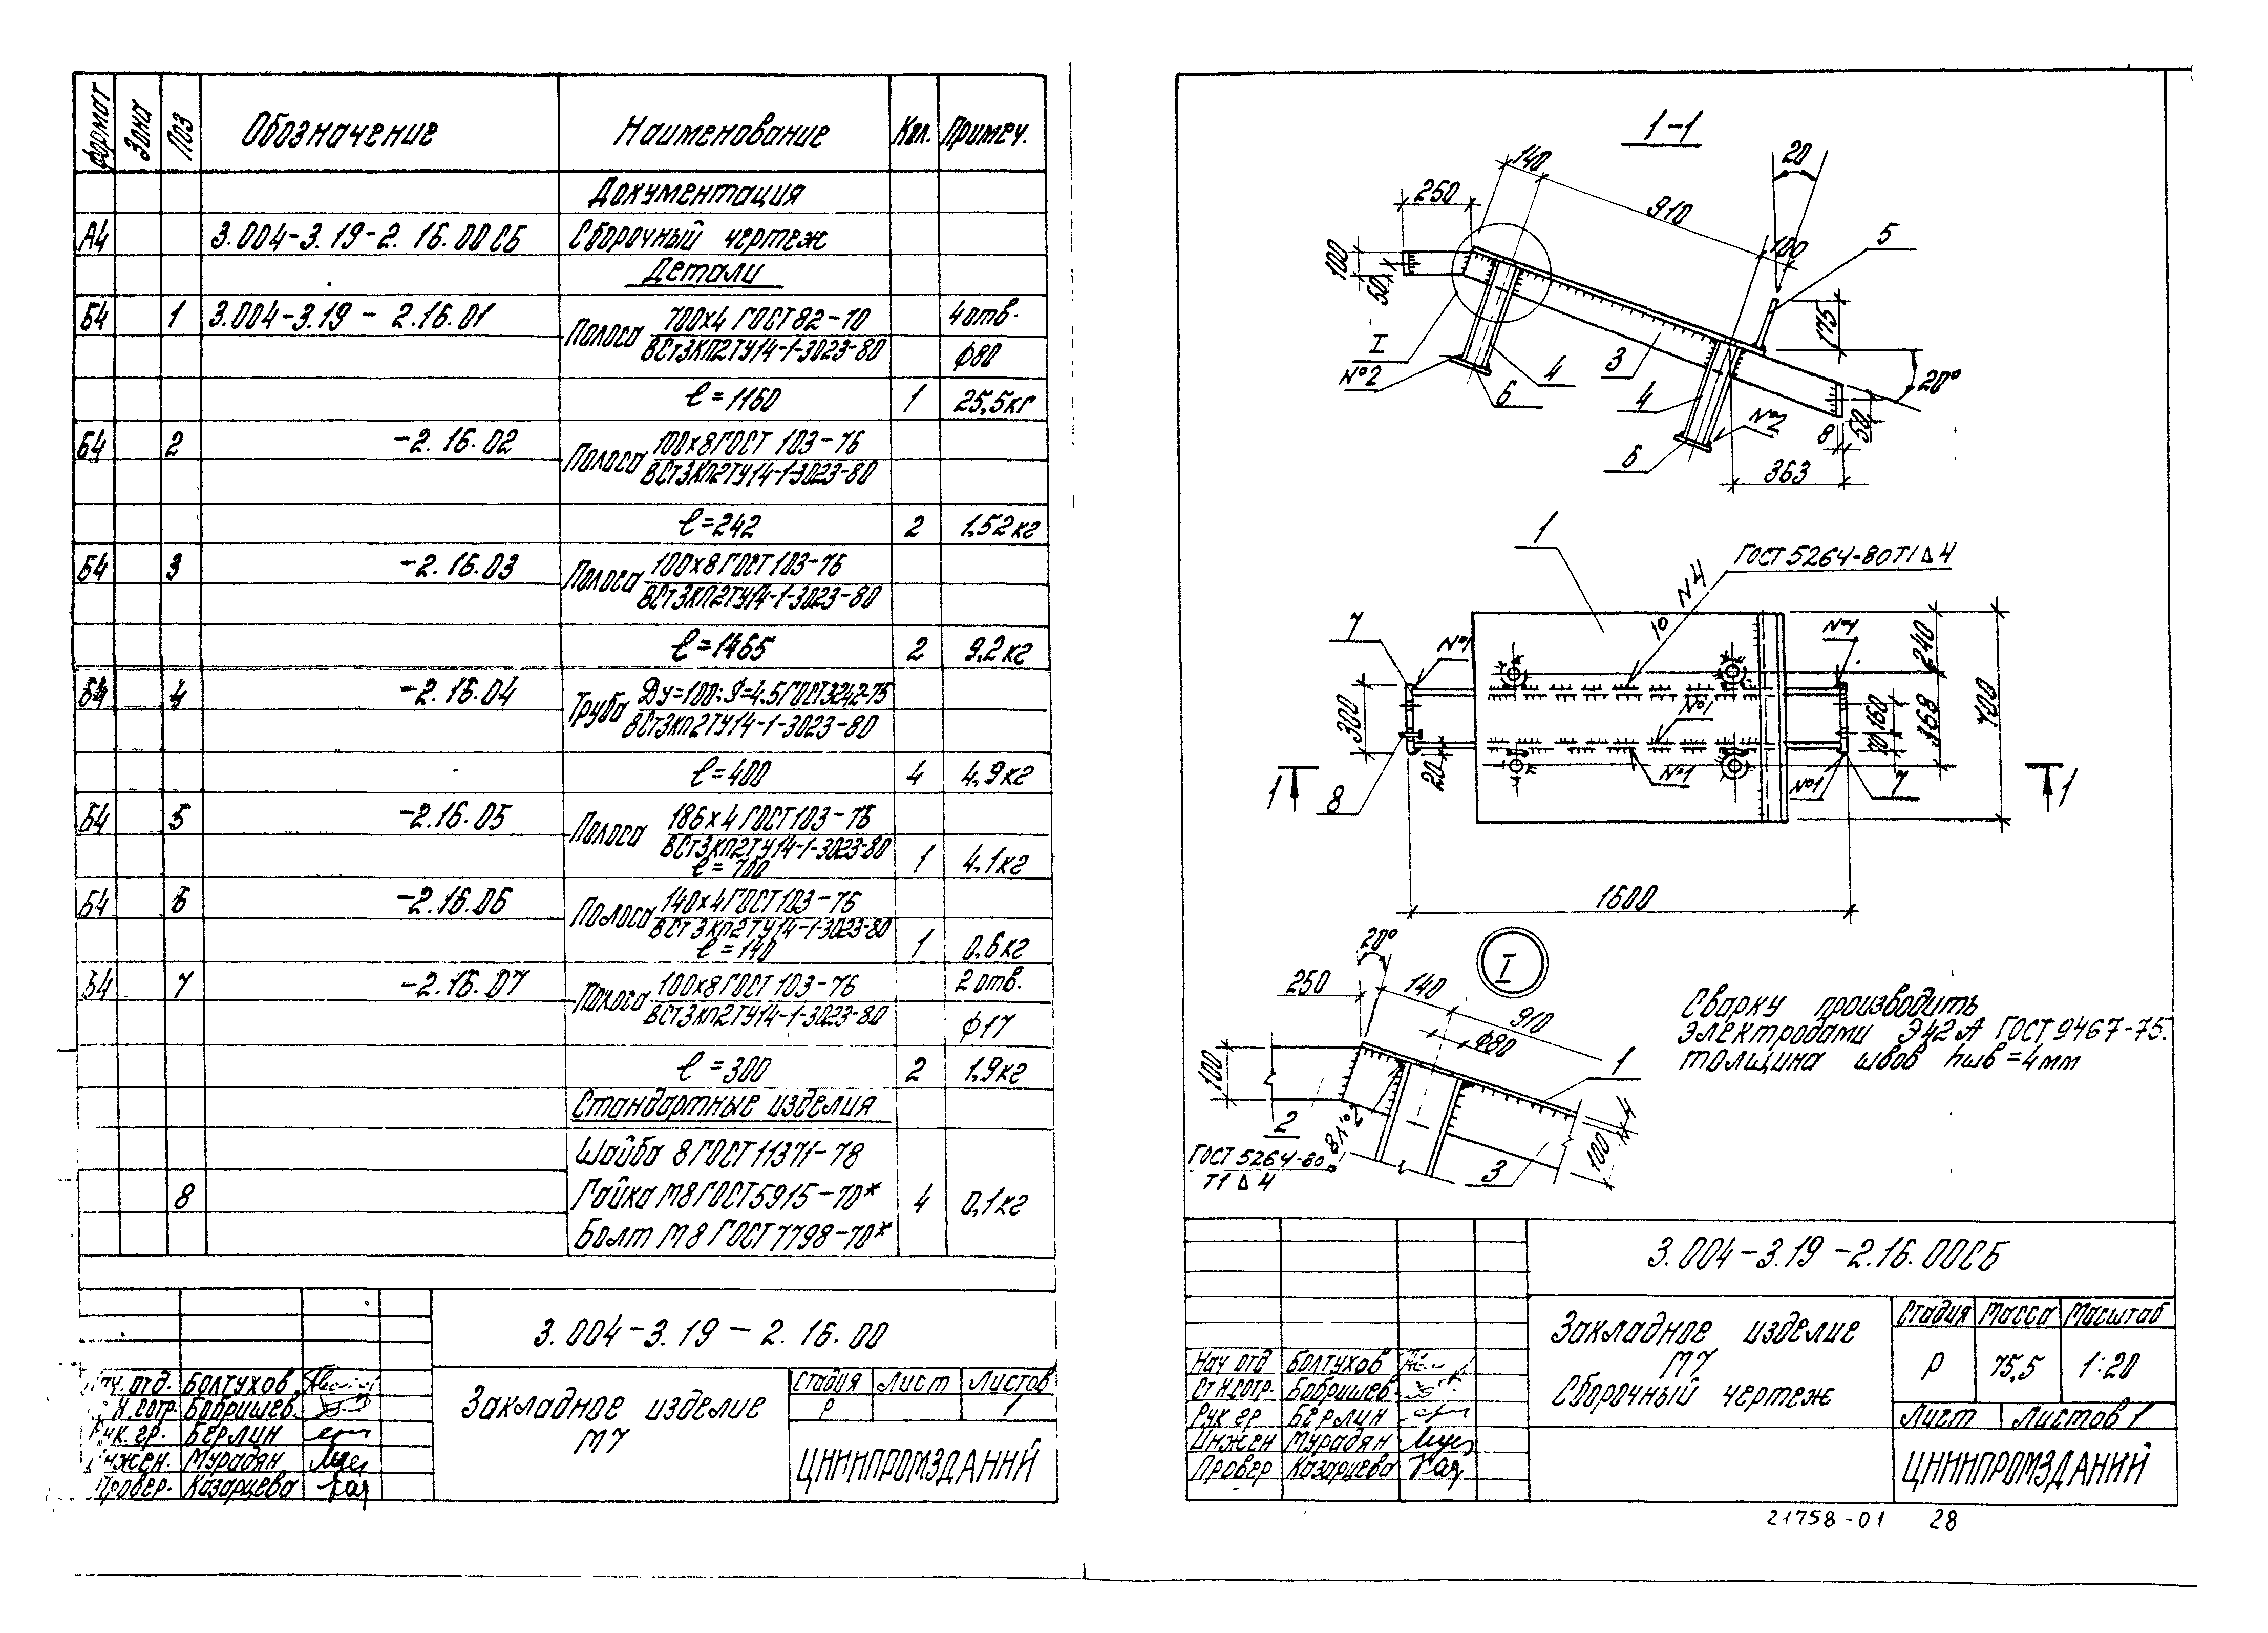 Формат Зона Поз Обозначение Наименование Кол. Примеч.
Документация
А4 3.004-3.19-2.16.00СБ Сборочный чертеж
Детали
Б4 1 3.004-3.19-2.16.01 Полоса 700х4 ГОСТ 82-70 4отв.
ВСт3КП2ТУ14-1-3023-80 ф80
ℓ=1160 1 25,5кг
Б4 2 -2.16.02 Полоса 100х8ГОСТ 103-76
ВСт3КП2ТУ14-1-3023-80
ℓ=242 2 1,52кг
Б4 3 -2.16.03 Полоса 100х8ГОСТ103-76
ВСт3КП2ТУ14-1-3023-80
ℓ=1465 2 9,2кг
Б4 4 -2.16.04 Труба Ду=100; S=4.5ГОСТ3242-75
ВСт3КП2ТУ14-1-3023-80
ℓ=400 4 4,9кг
Б4 5 -2.16.05 Полоса 186х4ГОСТ103-76
ВСт3КП2ТУ14-1-3023-80
ℓ=700 1 4,1кг
Б4 6 -2.16.06 Полоса 140х4ГОСТ103-76
ВСт3КП2ТУ14-1-3023-80
ℓ=140 1 0,6кг
Б4 7 -2.16.07 Полоса 100х8ГОСТ 103-76 2отв.
ВСт3КП2ТУ14-1-3023-80 ф17
ℓ=300 2 1,9кг
Стандартные изделия
Шайба 8ГОСТ11371-78
8 Гайка М8ГОСТ5915-70* 4 0,1кг
Болт М8ГОСТ7798-70*
3.004-3.19-2.16.00
Нач.отд. Болтухов
Н.сотр. Бобришев.
Рук.гр. Берлин
Инжен. Мурадян
Провер. Казарцева
Закладное изделие
М7
Стадия Лист Листов
Р 1
ЦНИИПРОМЗДАНИЙ
1-1
140
20
250
910
100
5
100
50
175
I
№2
6
4
3
20°
4
№2
6
8
50
363
1
ГОСТ5264-80Т1Δ4
№4
10
7
№1
№1
240
300
№1
160
368
700
70
20
№1
№1
7
8
1
1
1600
20°
I
250
140
910
ф80
1
100
2
№2
4
100
3
ГОСТ 5264-80
Т1Δ4
Сварку производить
электродами Э42А ГОСТ9467-75.
толщина швов hшв=4мм
3.004-3.19-2.16.00СБ
Закладное изделие
М7
Сборочный чертеж
Стадия Масса Масштаб
Р 75,5 1:20
Лист Листов 1
ЦНИИПРОМЗДАНИЙ
Нач отд Болтухов
Ст Н.сотр. Бобришев.
Рук гр Берлин
Инжен Мурадян
Провер Казарцева
21758-01 28